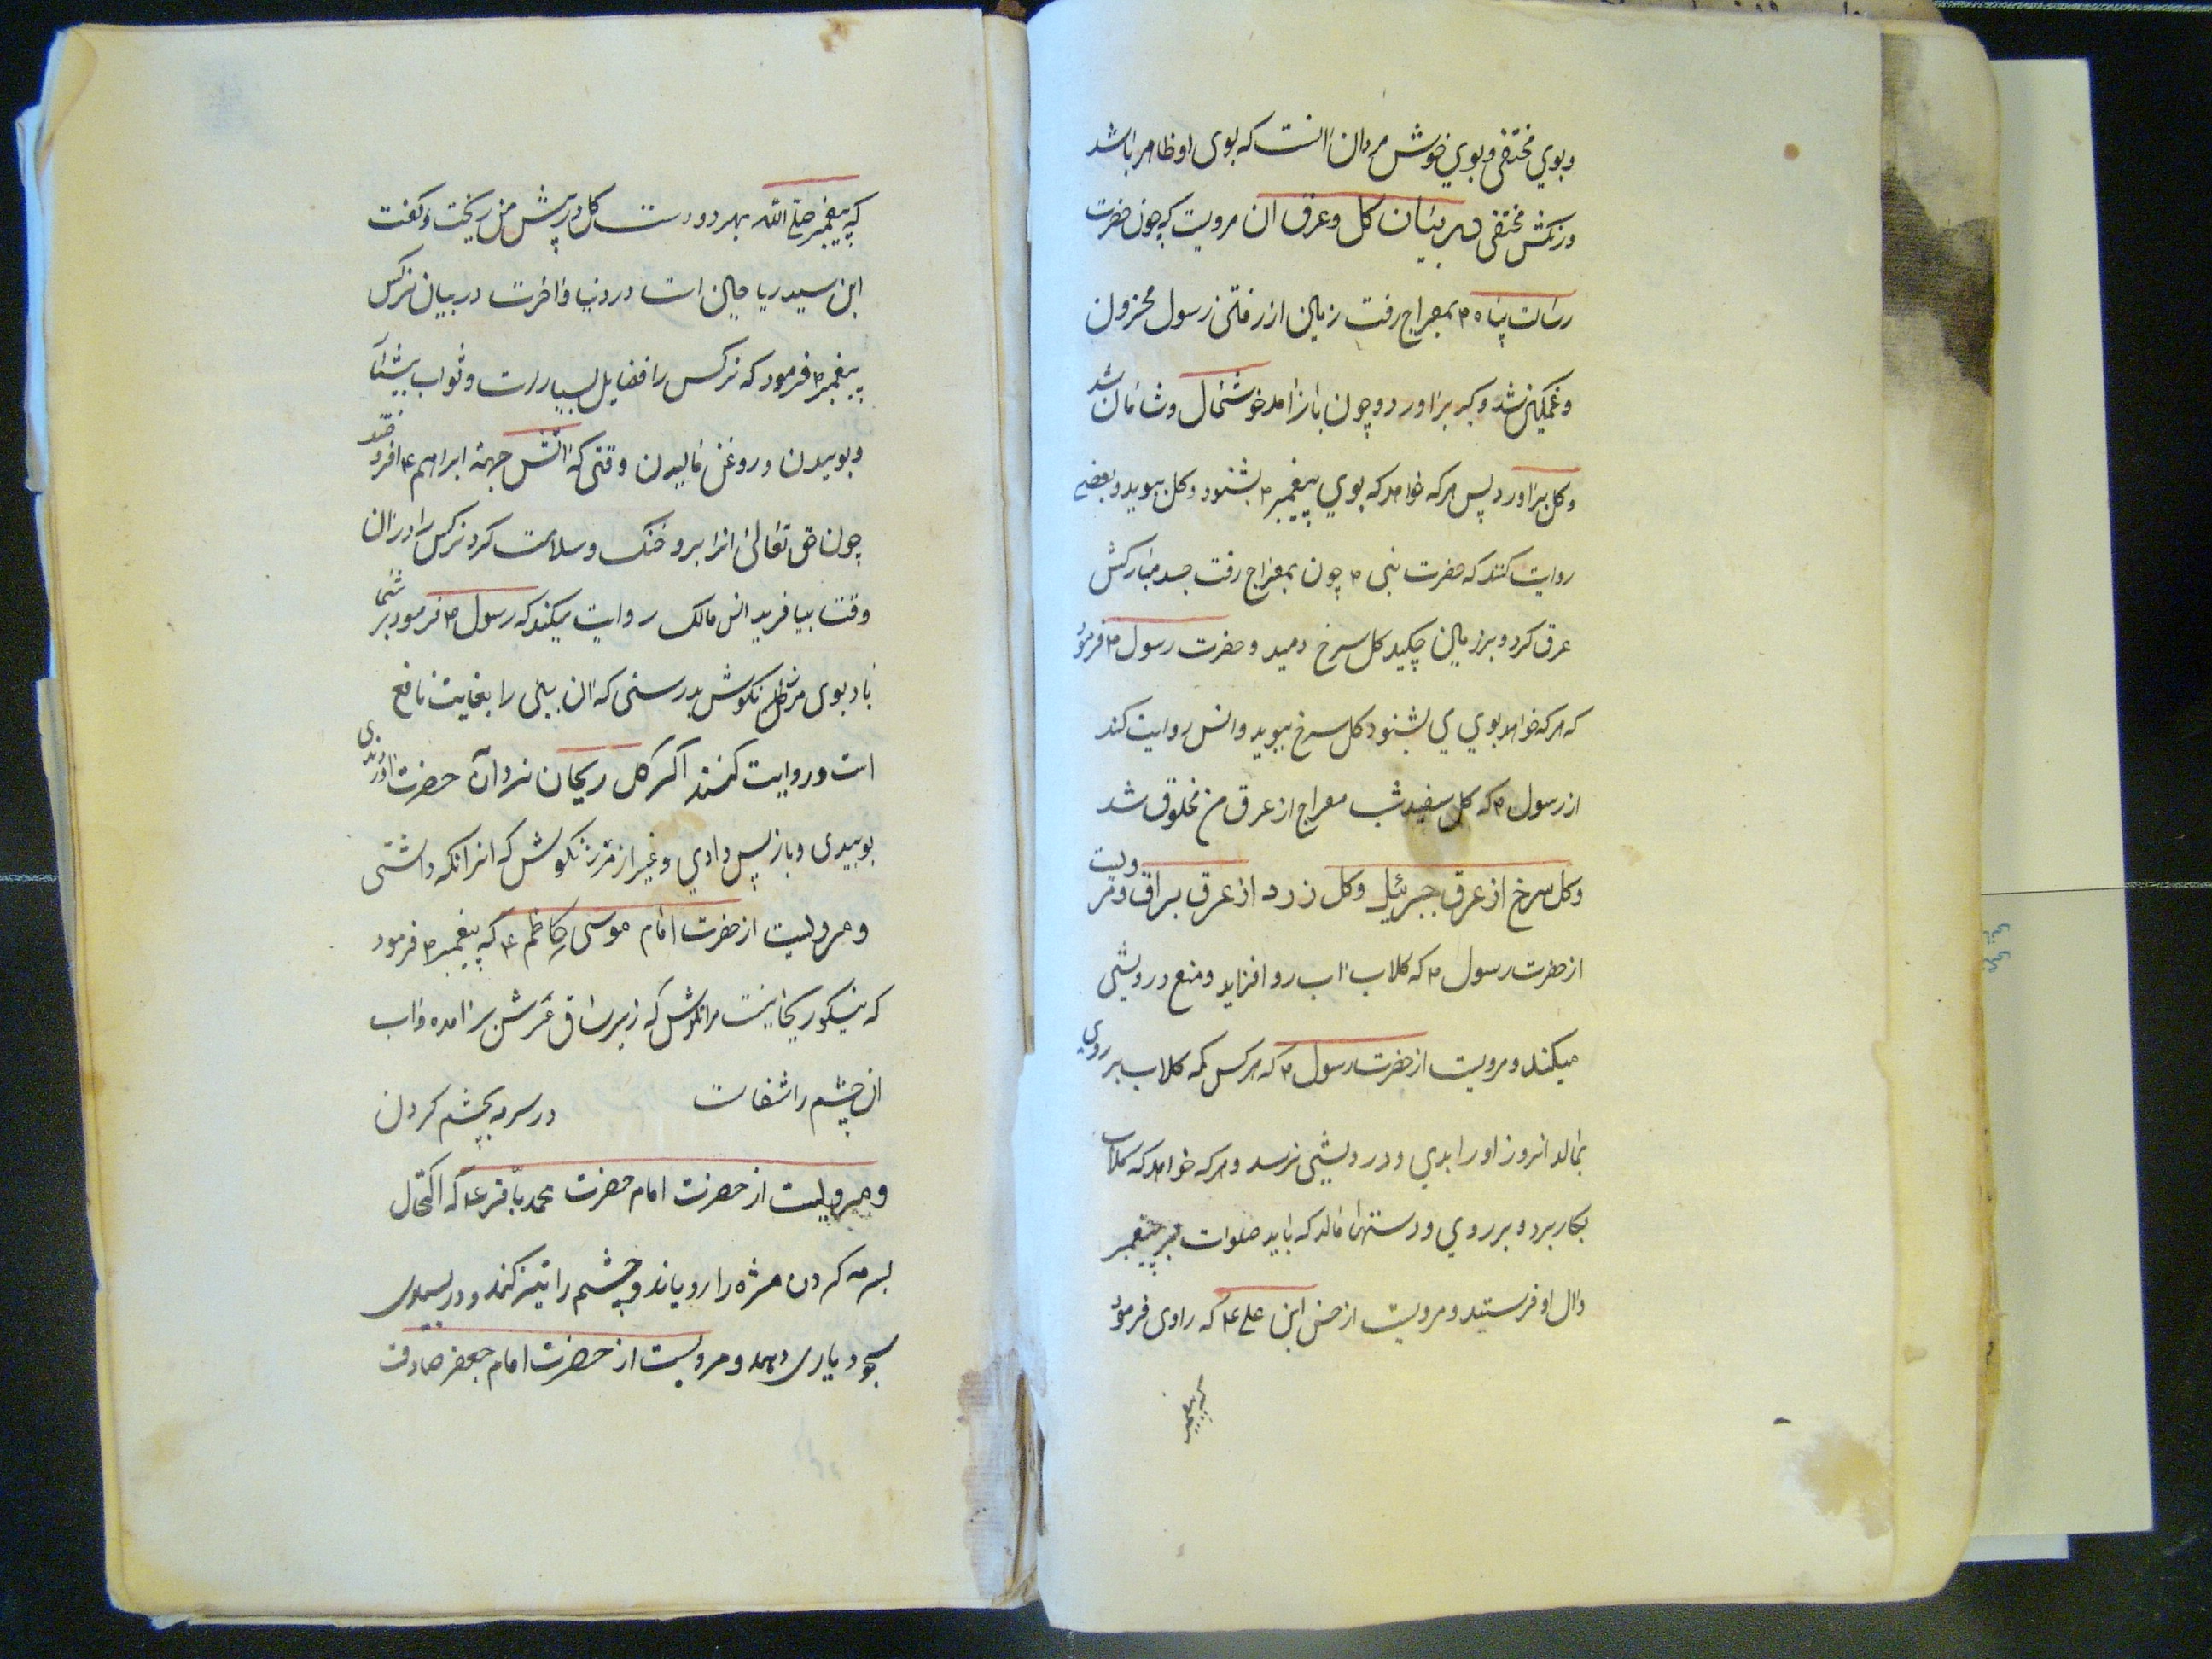 وبوي مختفی وبوي خوش مردان انست که بوی او ظاهر باشد
ورنکش مختفی در بیان کل وعرق ان مرویست که چون حضرت
رسالت پناه ۳ بمعراج رفت زمین از رفتن رسول محزون
وغمکین شد وکبر براورد وچون باز امد خوشحال وشادمان شد
وکل براورد پس هرکه خواهد که بوي پیغمبر ۳ بشنود وکل ببوید وبعضی
روایت کنند که حضرت نبی ۳ چون بمعراج رفت جسد مبارکش
عرق کرد وبر زمین چکید کل سرخ دمید وحضرت رسول ۳ فرمود
که هرکه خواهد بوي ي بشنود کل سرخ ببوید وانس روایت کند
از رسول ۳ که کل سفید شب معراج از عرق من مخلوق شد
وکل سرخ از عرق جبرئیل وکل زرد از عرق براق ومرویست
از حضرت رسول ۳ که کلاب اب رو افزاید ومنع درویشی
میکند ومرویست از حضرت رسول ۳ که هرکس که کلاب بر روی
بمالد انروز اورا بدي ودرویشی نرسد وهرکه خواهد که کلاب
بکار برد وبر روي ودستها مالد که باید صلوات بر پیغمبر
وال او فرستد ومرویست از حسن ابن علی ۴ که راوی فرمود
که پیغمبر
که پیغمبر صلی الله بهر دو دست کل در پیش من ریخت وکفت
این سید ریاحین است در دنیا واخرت در بیان نرکس
پیغمبر ۳ فرمود که نرکس را فضایل بسیار است وثواب بیشتر
وبوییدن وروغن مالیدن وقتی که اتش جهة ابراهیم ۴ افروختند
چون حق تعالی انرا برو خنک وسلامت کرد نرکس را دران
وقت بیافرید انس مالک روایت میکند که رسول ۳ فرمود بر شما
باد بوی مرزنکوش بدرستی که ان بینی را بغایت نافع
است وروایت کنند اکر کل ریحان نزد ان حضرت اوردندی
بوییدی وباز پس دادي وغیر از مرزنکوش که انرا نکه داشتی
ومرویست از حضرت امام موسی کاظم ۴ که پیغمبر ۳ فرمود
که نیکو ریحانیست مرزنکوش که زیر ساق عرش برامده واب
ان چشم را شفاست در سرمه بچشم کردن
ومرویست از حضرت امام حضرت محمد باقر ۴ که اکتحال
بسرمه کردن مژه را رویاند وچشم را تیز کند ودر
سجود یاری دهد ومرویست از حضرت امام جعفر صادق